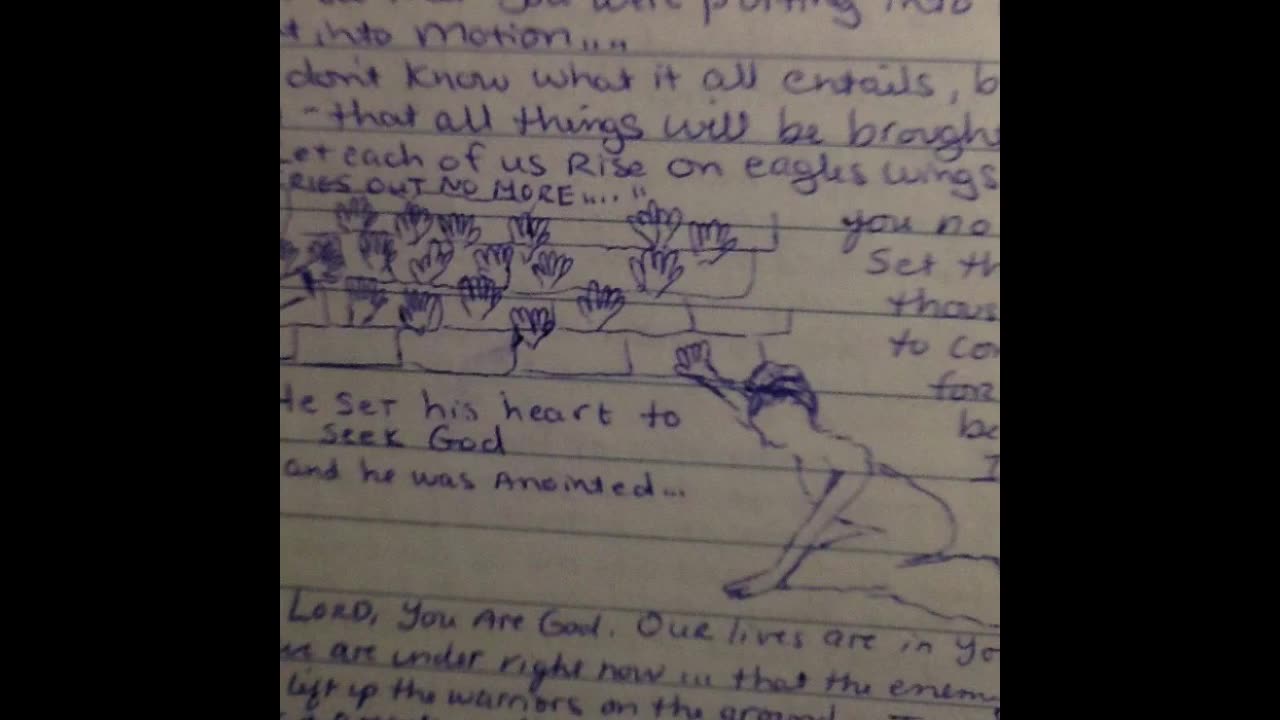 you were putting into
into motion....
don't know what it all entails, b
- that all things will be brough
Let each of us Rise on eagles wings
RIES OUT NO MORE....."
you no
Set th
thous
to con
for
be
I
He Set his heart to
Seek God
and he was Anointed...
LORD, You Are God. Our lives are in yo
we are under right now... that the enem
lift up the warriors on the ground